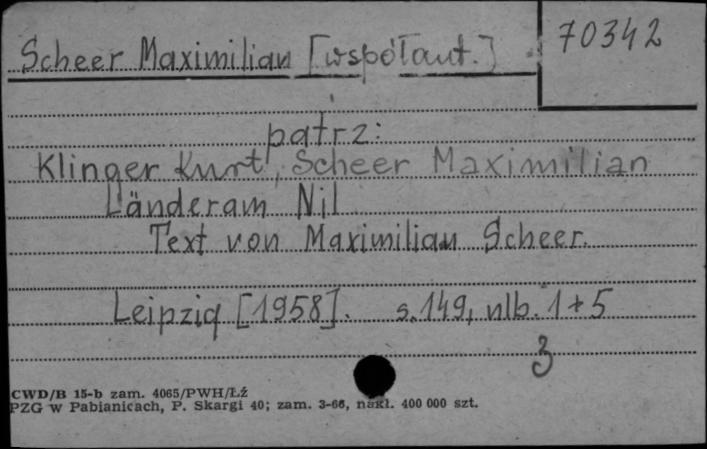 Scheer Maximilian [współaut.]
70342
patrz:
Klinger Kurt, Scheer Maximilian
Länderam Nil
Text von Maximilian Scheer.
Leipzig [1958]. s. 149, nlb. 1+5
3
CWD/B 15-b zam. 4065/PWH/Łź
PZG w Pabianicach, P. Skargi 40; zam. 3-66, nakł. 400 000 szt.